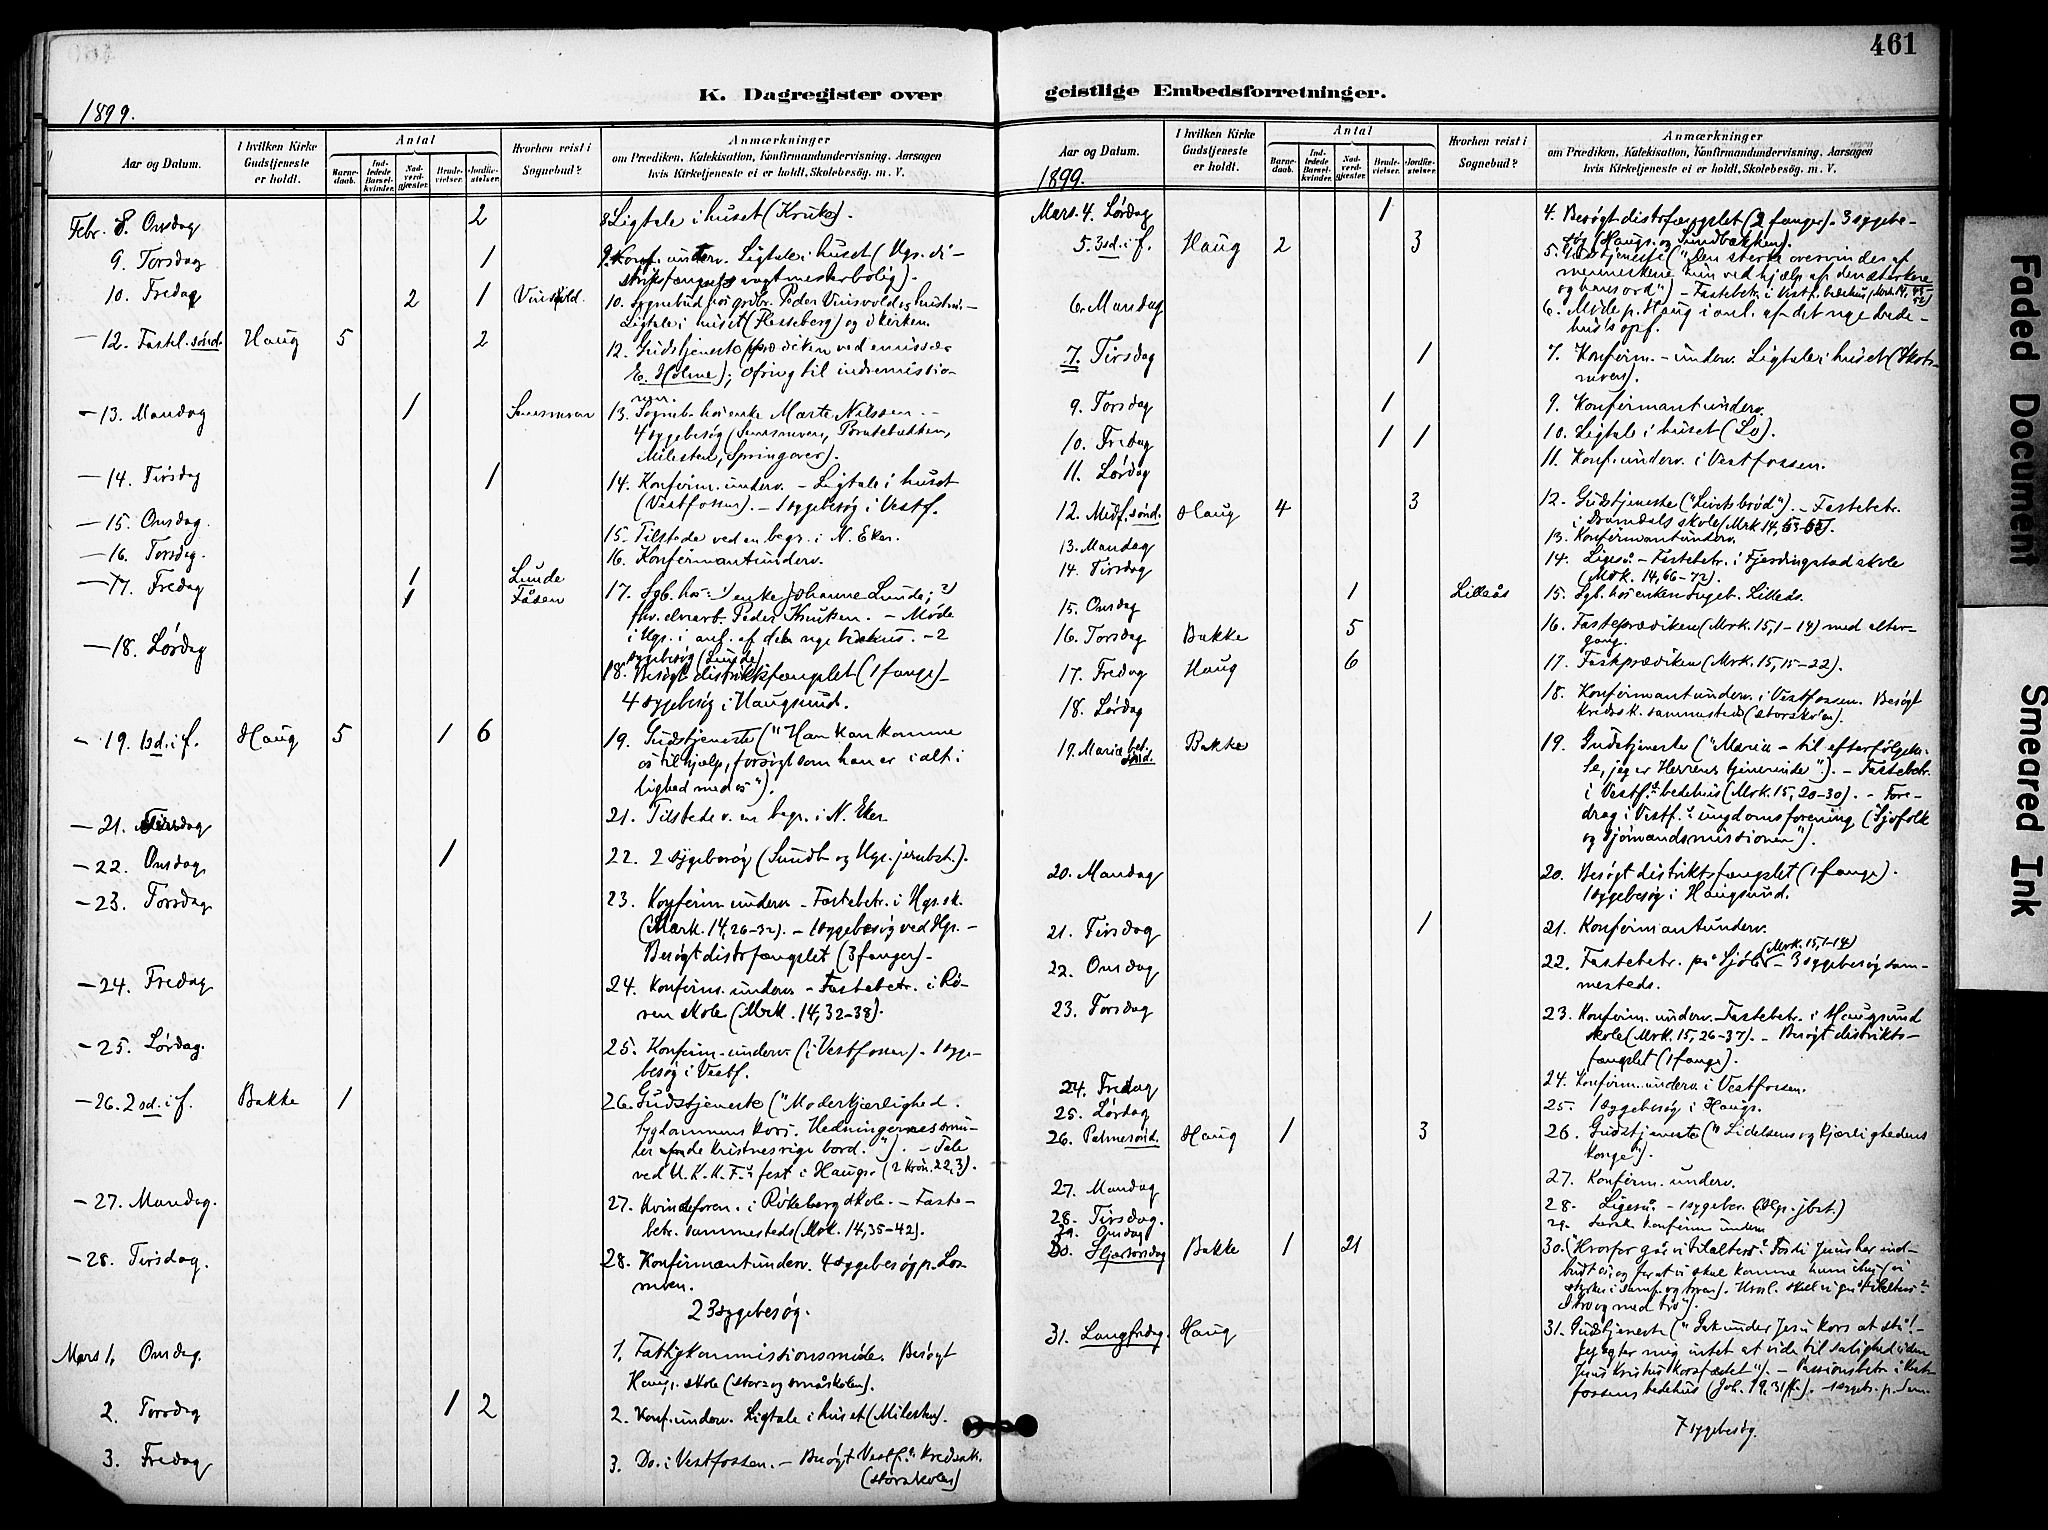 461
K. Dagregister over geistlige Embedsforretninger.
1899.
Aar og Datum.
I hvilken Kirke Gudstjeneste er holdt.
Antal
Barnedaab.
Indledede Barselkvinder.
Nadverdgjæster.
Brudevielser.
Jordfæstelser.
Hvorhen reist i Sognebud?
Anmærkninger
om Prædiken, Katekisation, Konfirmandundervisning. Aarsagen
hvis Kirketjeneste ei er holdt, Skolebesøg. m. V.
Febr. 8. Onsdag 2 8. Ligtale i huset (Kruke).
9. Torsdag 1 9. Konf. underv. Ligtale i huset (Hgs. di-
striksfængsels vagtmesterbolig).
10. Fredag 2 1 10. Sognebud hos grdbr. Peder
Ligtale i huset (Flesseberg) og i kirken.
12. Fastel. sønd. Haug 5 2 12. Gudstjeneste (prædiken ved emissær
E. Holme); ofring til indremissio-
nen.
13. Mandag 1 13. Sogneb. hos enke Marte Nilssen. -
4 sygebesøg
Milesten, Springover).
14. Tirsdag 1 14. Konfirm. underv. - Ligtale i huset
(Vestfossen). - 1 sygebesøg i Vestf.
15. Onsdag. 15. Tilstede ved en begr. i N. Eker.
16. Torsdag. 16. Konfirmantunderv.
17. Fredag 1 Lunde
1 Åsen 17. Sgb. hos: 1) enke Johanne Lunde; 2)
fhv. elvarb. Peder Kruken. - Møde
i Hgs. i anl. af det nye bedehus. - 2
sygebesøg (Lunde)
18. Lørdag 18. Besøgt distriktsfængslet (1 fange) -
4 sygebesøg i Haugsund.
19. 1 sd. i f. Haug 5 1 6 19. Gudstjeneste ("Han kan komme
os til hjælp, forsøgt som han er i alt i
lighed med os").
21. Tirsdag 21. Tilstede v. en begr. i N. Eker
22. Onsdag, 1 22. 2 sygebesøg (Sundb. og Hgs. jernbst.).
23. Torsdag 23. Konfirm. underv. - Fastebetr. i Hgs. sk.
(Mark. 14, 26-32). - 1 sygebesøg ved Hgs. -
Besøgt distrfængslet (3 fanger) -
24. Fredag 24. Konfirm. underv. - Fastebetr. i Rø-
ren skole (Mrk. 14, 32-38).
25. Lørdag. 25. Konfirm. underv. (i Vestfossen) - 1 syge-
besøg i Vestf.
26. 2 sd. i f. Bakke 1 26. Gudstjeneste ("Moderkjærlighed.
Sygdommens kors. Hedningernes smu-
ler fra de kristnes rige bord."). - Tale
ved U. K. K. F.s fest i Haugs. (2 Krøn. 22, 3).
27. Mandag. 27. Kvindeforen. i Røkeberg skole. - Faste-
betr. sammesteds (Mrk. 14, 35-42).
28. Tirsdag. 28. Konfirmantunderv. 4 sygebesøg p. Los-
moen.
23 sygebesøg.
Mars 1. Onsdag. 1. Fattigkommissionsmøde. Besøgt
Haugs. skole (stor- og småskolen).
2. Torsdag 1 2 2. Konf. underv. Ligtale i huset (Milesten).
3. Fredag 3. Do. i Vestfossen. - Besøgt Vestf.s kredssk.
(storskolen)
1899.
Aar og Datum.
I hvilken Kirke Gudstjeneste er holdt.
Antal
Barnedaab.
Indledede Barselkvinder.
Nadverdgjæster.
Brudevielser.
Jordfæstelser.
Hvorhen reist i Sognebud?
Anmærkninger
om Prædiken, Katekisation, Konfirmandundervisning, Aarsagen
hvis Kirketjeneste ei er holdt, Skolebesøg. m. V.
Mars. 4. Lørdag 1 4. Besøgt distrfængslet (2 fanger). 3 sygebe-
søg (Haugs. og Sundbakken).
5. 3 sd. i f. Haug 2 3 5. Gudstjeneste ("Den stærke overvindes af
menneskene kun ved hjælp af den stærkere
og hans ord") - Fastebetr. i Vestf. bedehus (Mrk. 14, 43-52)
6. Mandag 6. Møde p. Haug i anl. af det nye bede-
hus's opf.
7. Tirsdag 1 7. Konfirm. - underv. Ligtale i huset
9. Torsdag 1 9. Konfirmantunderv.
10. Fredag 1 1 10. Ligtale i huset (Lo).
11. Lørdag 11. Konf. underv. i Vestfossen.
12. Midf. sønd. Haug 4 3 12. Gudstjeneste ("Livets brød"). - Fastebetr.
i Dramdals skole (Mrk 14, 53-65).
13. Mandag 13. Konfirmantunderv.
14. Tirsdag 14. Ligeså - Fastebetr. i Fjerdingstad skole
(Mrk. 14, 66-72).
15. Onsdag 1 Lilleås 15. Sgb. hos enken Ingeb. Lilleås.
16. Torsdag Bakke 5 16. Fasteprædiken (Mrk. 15, 1-14) med alter-
gang.
17. Fredag Haug 6 17. Fasteprædiken (Mrk. 15, 15-22).
18. Lørdag 18. Konfirmantunderv. i Vestfossen. Besøgt
kredssk. sammesteds (storskolen).
19. Mariæ bet. sønd. Bakke 19. Gudstjeneste ("Maria - til efterfølgel-
se, jeg er Herrens tjenerinde"). - Fastebetr.
i Vestf.s bedehus (Mrk. 15, 20-30). - Fore-
drag i Vestf.s ungdomsforening ("Sjøfolk
og sjømandsmissionen").
20. Mandag 20. Besøgt distriktsfængslet (1 fange).
1 sygebesøg i Haugsund.
21. Tirsdag 1 21. Konfirmantunderv.
22. Onsdag 22. Fastebetr. på Sjøle (Mrk. 15, 1-14) - 3 sygebesøg sam-
mesteds.
23. Torsdag 23. Konfirm. underv. - Fastebetr. i Haugsund
skole (Mrk. 15, 26-37). - Besøgt distrikts-
fængslet (1 fange).
24. Fredag 24. Konfirm. underv. i Vestfossen.
25. Lørdag 25. 1 sygebesøg i Haugs.
26. Palmesønd. Haug 1 3 26. Gudstjeneste ("Lidelsens og kjærlighedens
konge").
27. Mandag 27. Konfirm. underv.
28. Tirsdag. 28. Ligeså. - 1 sygebes. (Hgs. jbst.)
29. Onsdag 29. konfirm underv
30. Skjærtorsdag Bakke 1 21 30. ("Hvorfor går vi til alters? Fordi Jesus har ind-
budt os, og for at vi skal komme ham ihu,
styrkes i samf. og troen). Hvorl. skal vi gå til alters?
I tro og med tro").
31. Langfredag. Haug 31. Gudstjeneste ("Lær under Jesu kors at stå! -
Jeg agter mig intet at vide til salighed uden
Jesus Kristus korsfæstet"). - Passionsbetr. i Vest-
fossens bedehus (Joh. 19, 31 ff.). - 1 sygeb.
7 sygebesøg.
Faded Document
Smeared Ink